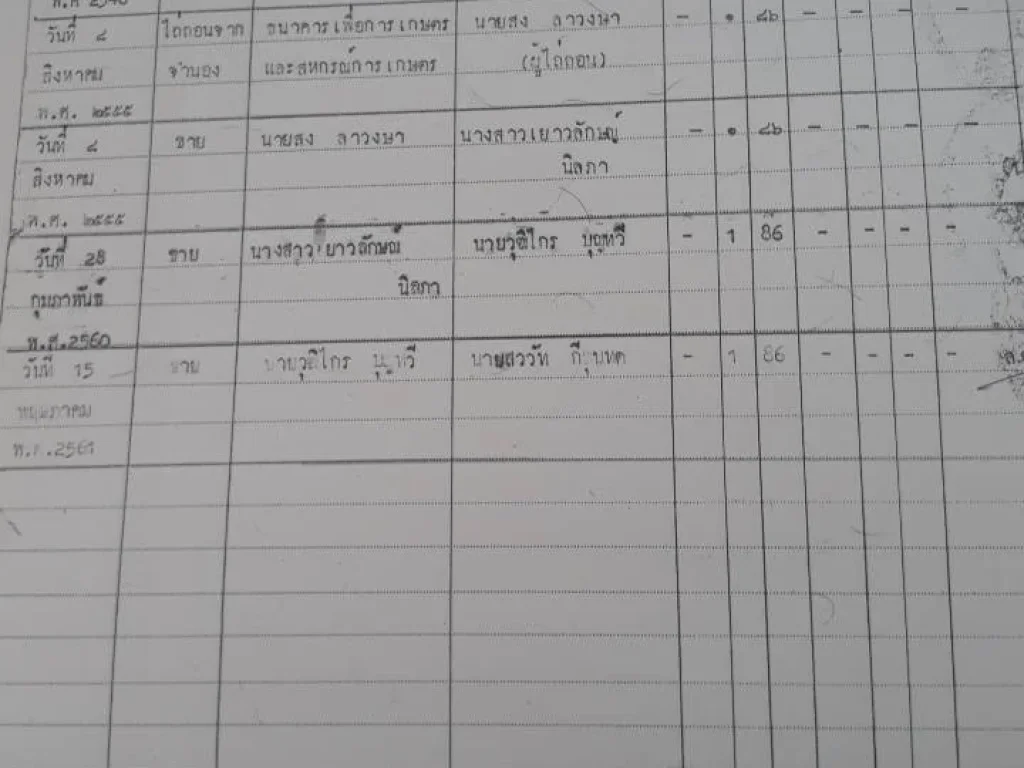 วันที่ ๘ ไถ่ถอนจาก ธนาคารเพื่อการเกษตร นายสง ลาวงษา - ๑ ๘๖ - - - -
สิงหาคม จำนอง และสหกรณ์การเกษตร (ผู้ไถ่ถอน)
พ.ศ. ๒๕๕๕
วันที่ ๘ ขาย นายสง ลาวงษา นางสาวเยาวลักษณ์ - ๑ ๘๖ - - - -
สิงหาคม นิลภา
พ.ศ. ๒๕๕๕
วันที่ 28 ขาย นางสาวเยาวลักษณ์ นายวุฒิไกร - 1 86 - - - -
กุมภาพันธ์ นิลภา
พ.ศ.2560
วันที่ 15 ขาย นายวุฒิไกร - 1 86 - - - -
พฤษภาคม